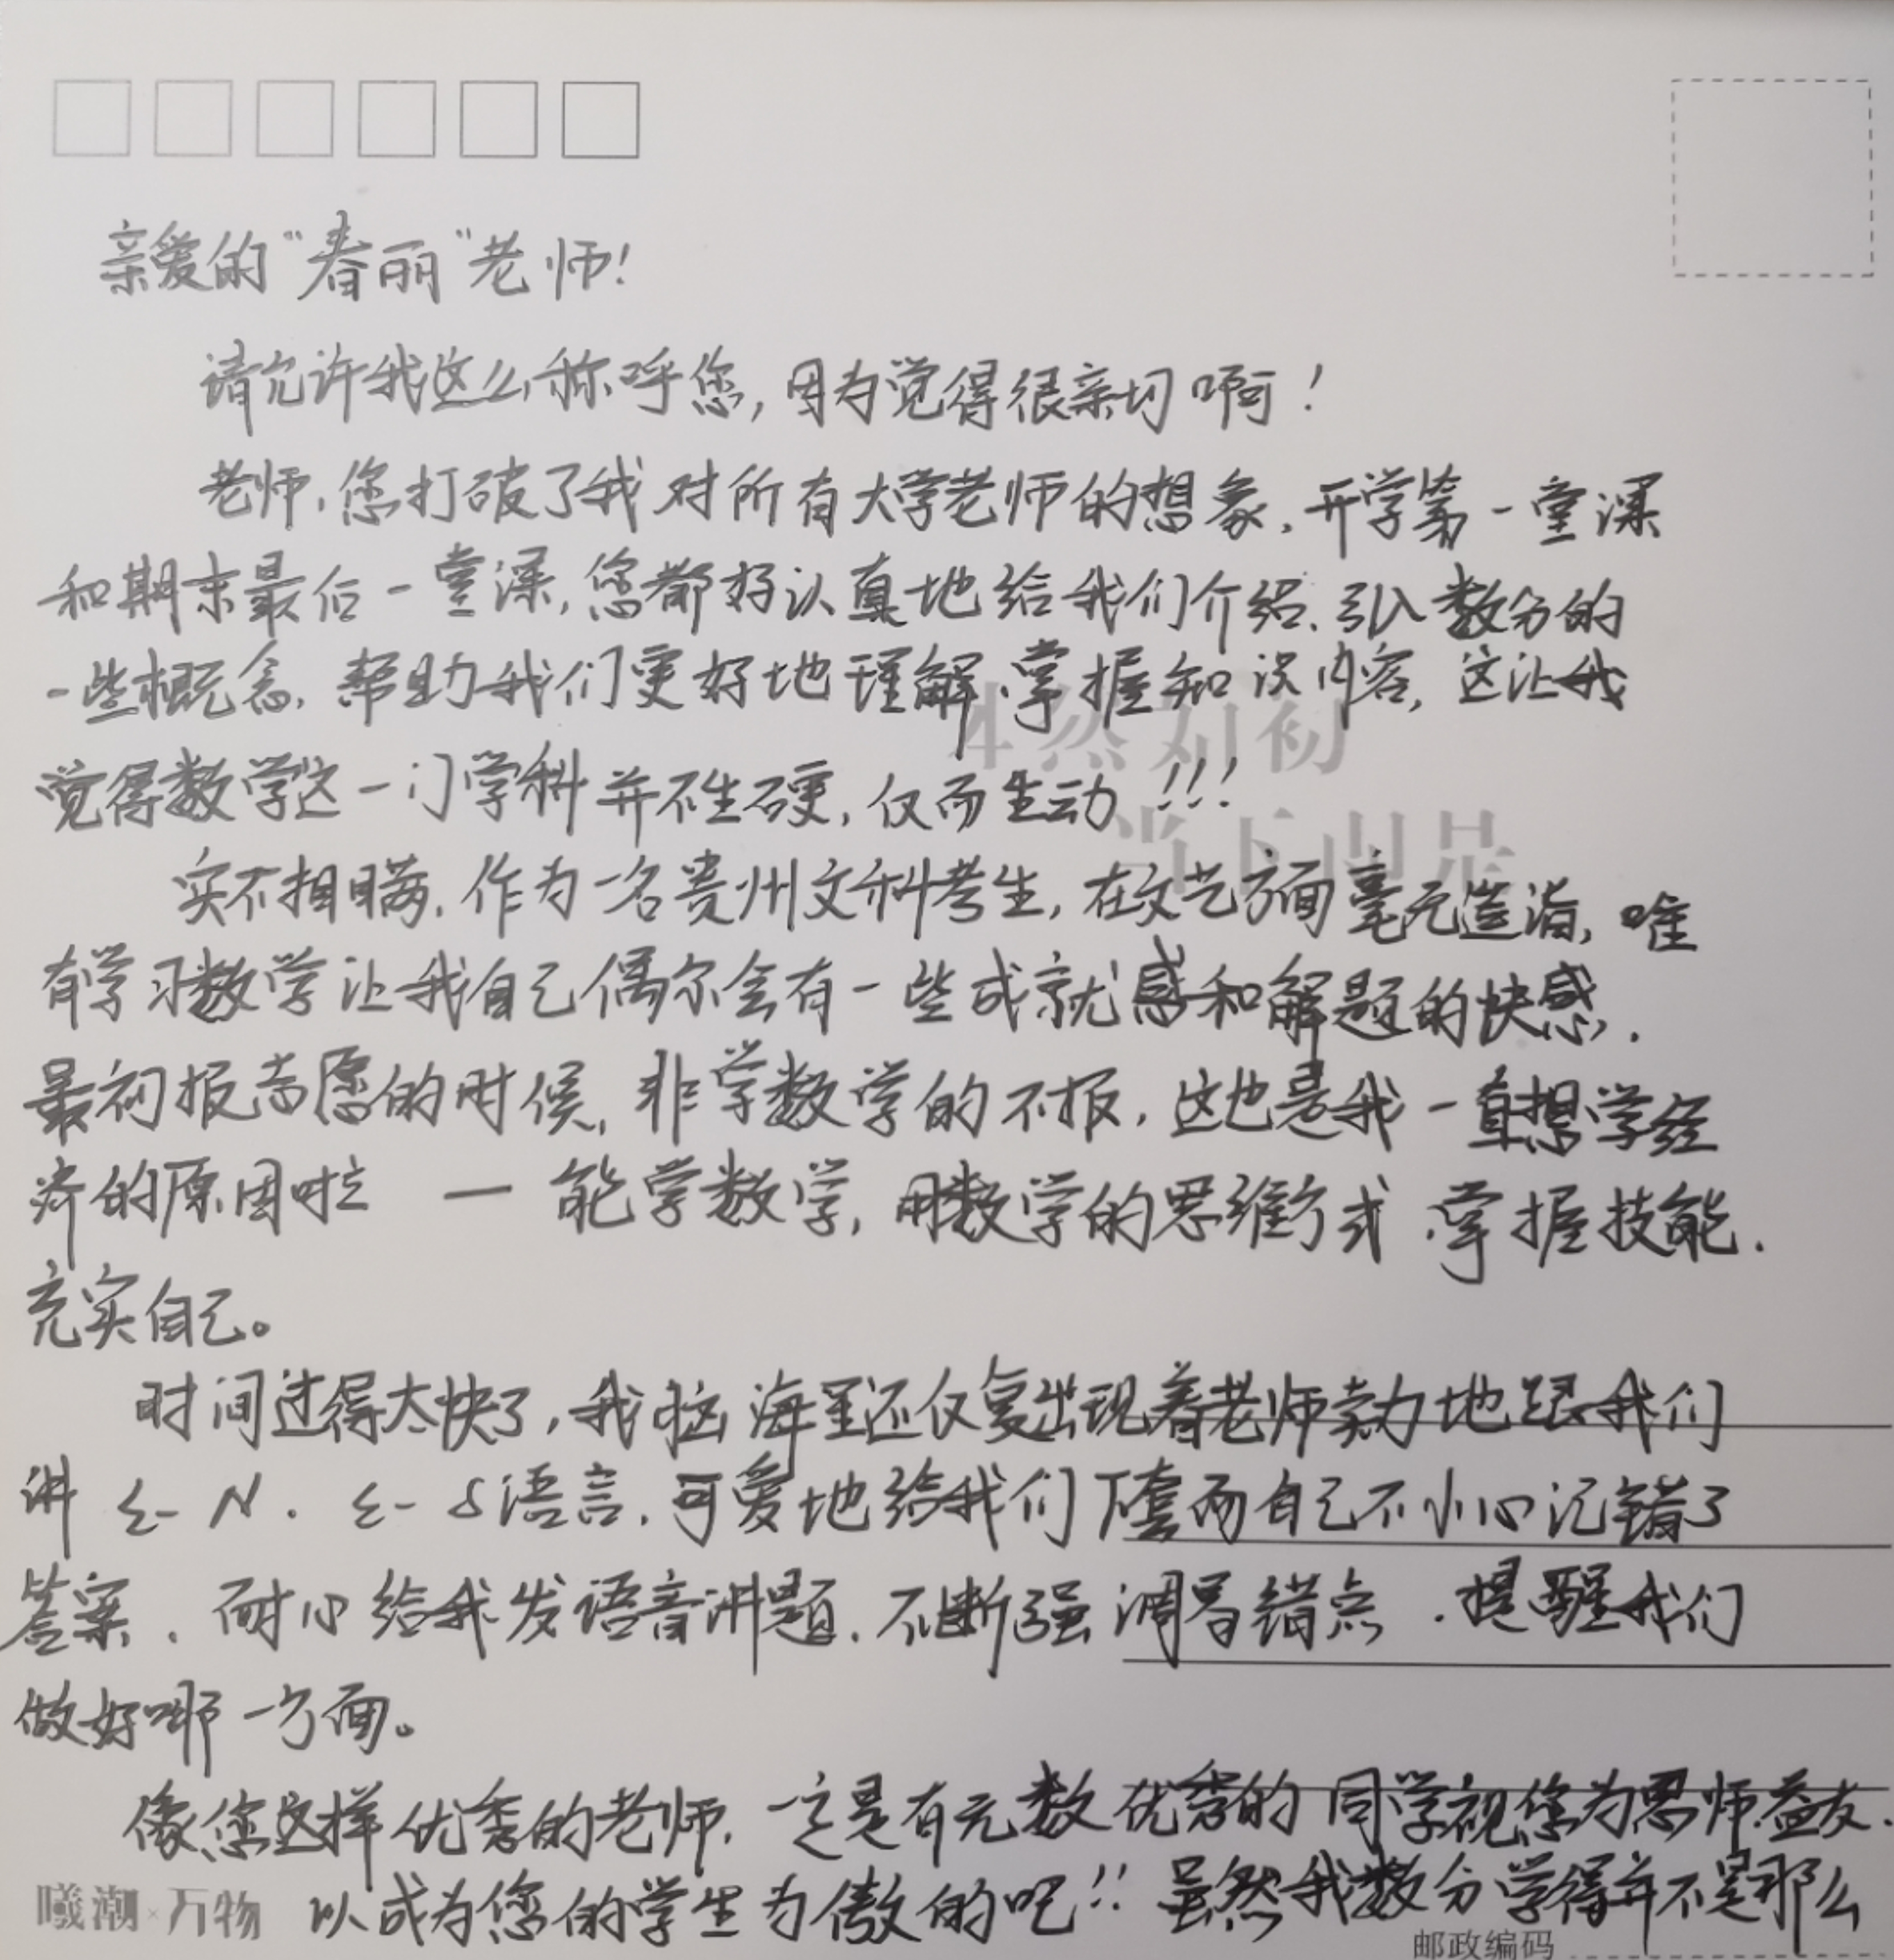 亲爱的“春丽”老师！
请允许我这么称呼您，因为觉得很亲切啊！
老师，您打破了我对所有大学老师的想象，开学第一堂课
和期末最后一堂课，您都好认真地给我们介绍、引入数分的
一些概念，帮助我们更好地理解、掌握知识内容，这让我
觉得数学这一门学科并不生硬，仅而生动！！！
实不相瞒，作为一名贵州文科考生，在文艺方面毫无造诣，唯
有学习数学让我自己偶尔会有一些成就感和解题的快感，
最初报志愿的时候，非学数学的不报，这也是我一直想学经
济的原因啦 — 能学数学，用数学的思维方式、掌握技能，
充实自己。
时间过得太快了，我脑海里还仅复出现着老师卖力地跟我们
讲 ε- N、ε- δ语言，可爱地给我们下套而自己不小心记错了
答案、耐心给我发语音讲题、不断强调易错点、提醒我们
做好哪一方面。
像您这样优秀的老师，一定是有无数优秀的同学视您为恩师益友，
以成为您的学生为傲的吧！！虽然我数分学得并不是那么
曦潮×万物
邮政编码